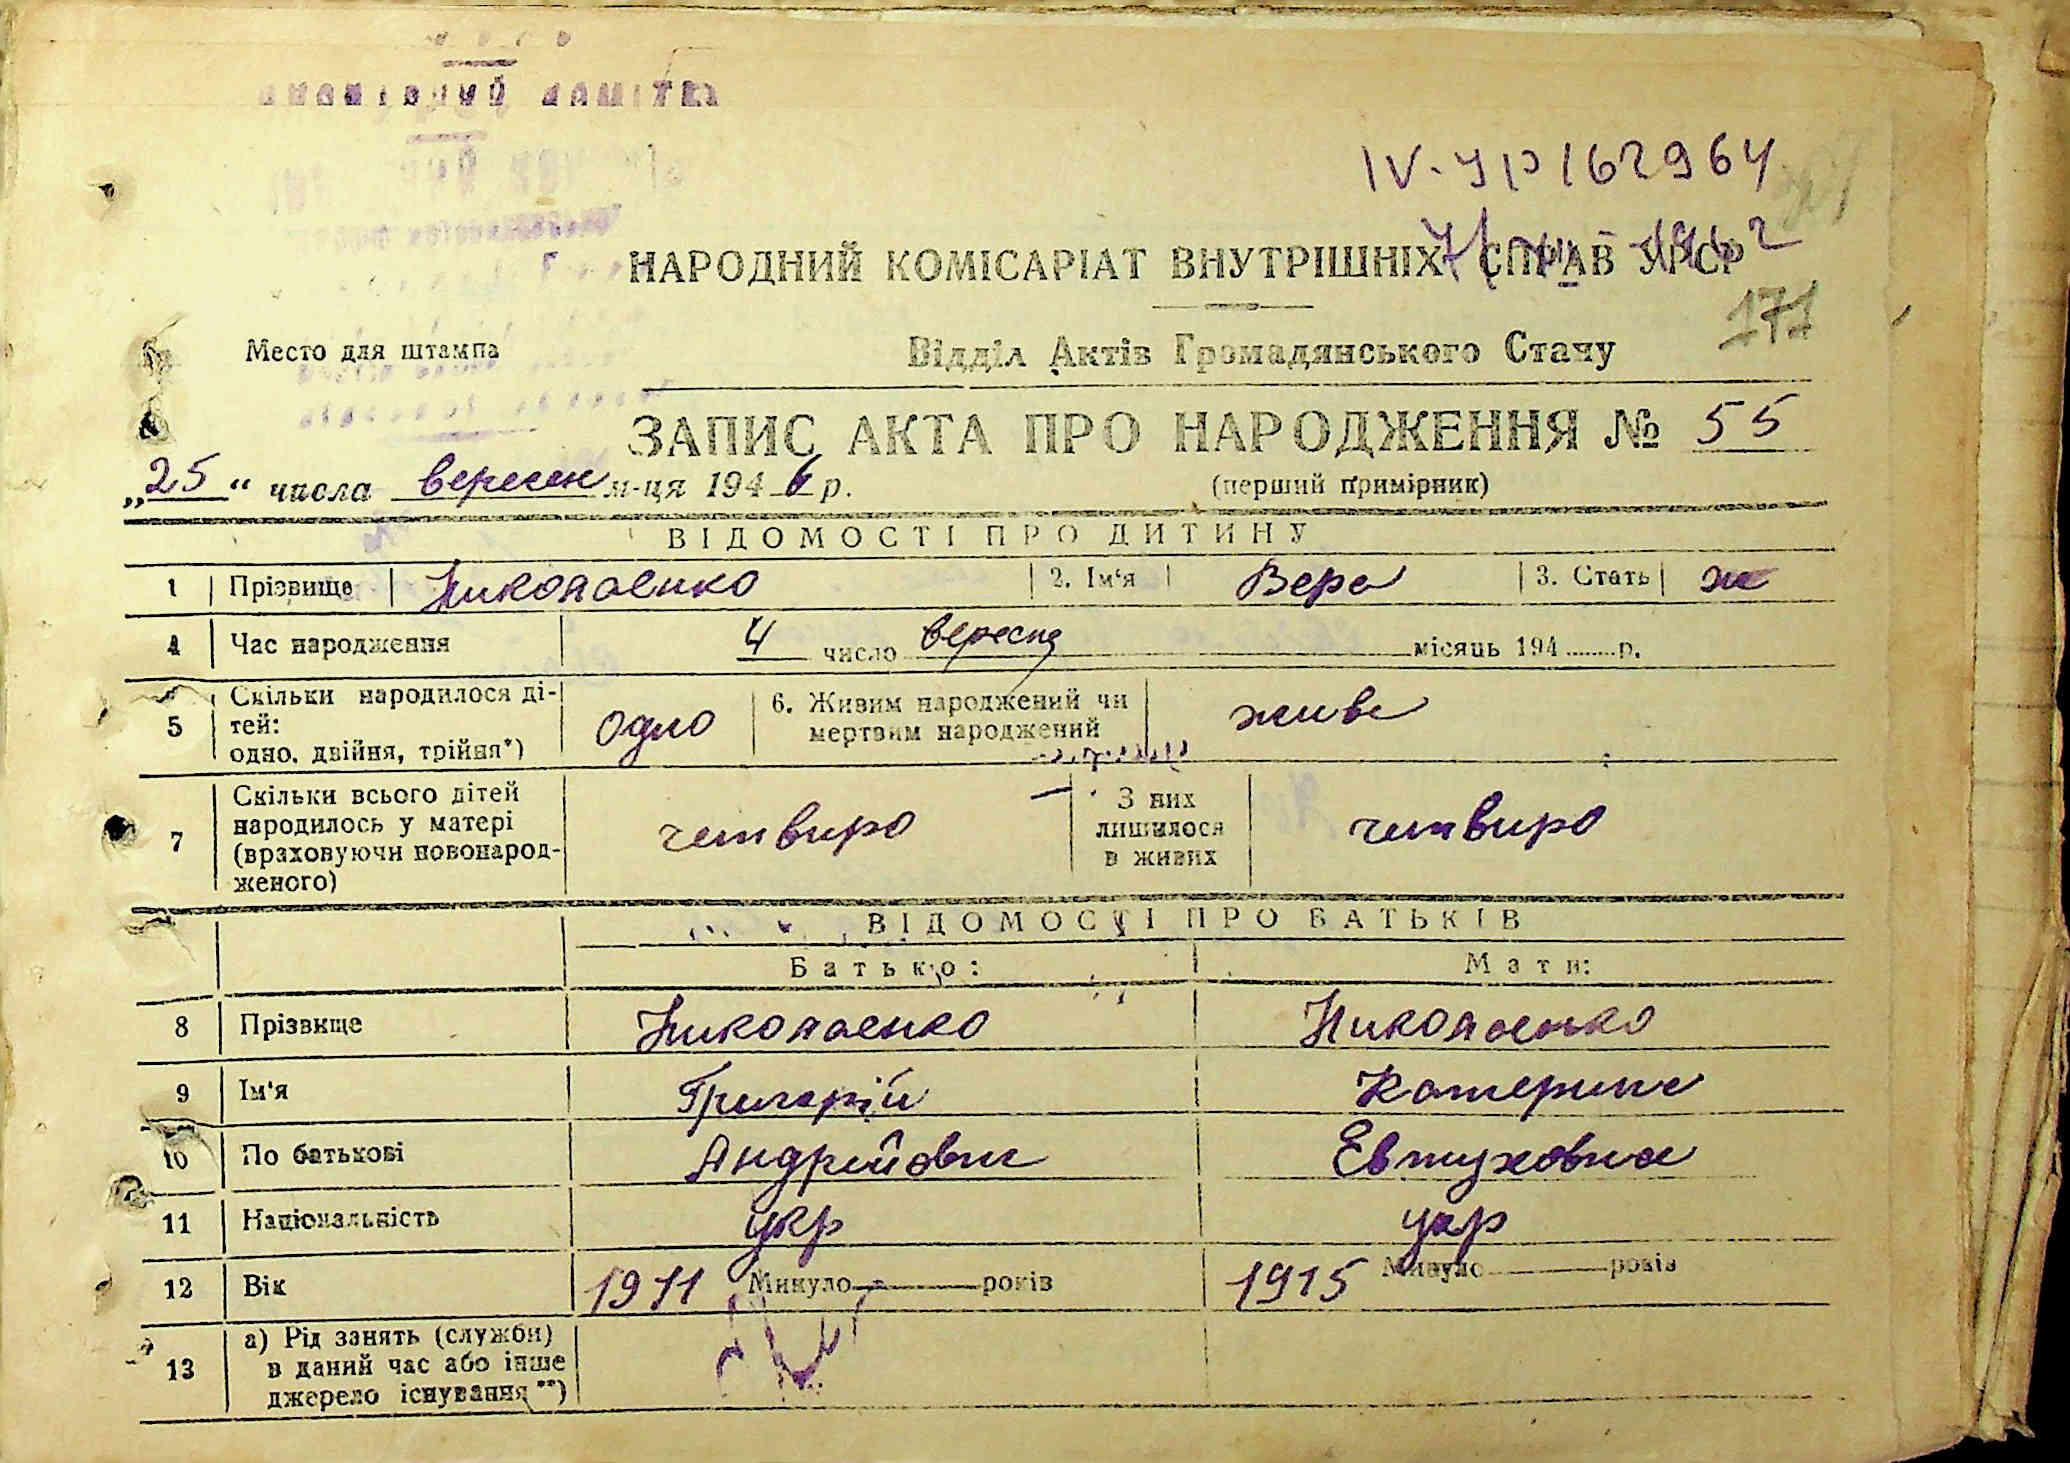 IV-УР 162964
НАРОДНИЙ КОМІСАРІАТ ВНУТРІШНІХ СПРАВ УРСР
171
Место для штампа
Відділ Актів Громадянського Стану
ЗАПИС АКТА ПРО НАРОДЖЕННЯ № 55
„25“ числа вересен м-ця 1946 р.
(перший примірник)
ВІДОМОСТІ ПРО ДИТИНУ
1 Прізвище Николаенко 2. Ім'я Вера 3. Стать ж
4 Час народження 4 число вересня місяць 194 р.
5 Скільки народилося ді-
тей:
одно, двійня, трійня*) одно
6. Живим народжений чи
мертвим народжений живе
7 Скільки всього дітей
народилось у матері
(враховуючи новонарод-
женого) четвиро
З них
лишилося
в живих четвиро
ВІДОМОСТІ ПРО БАТЬКІВ
Батько: Мати:
8 Прізвище Николаенко Николаенко
9 Ім'я Григорій Катерина
10 По батькові Андрейович Евтуховна
11 Національність укр укр
12 Вік 1911 Минуло років 1915 Минуло років
13 а) Рід занять (служби)
в даний час або інше
джерело існування**)